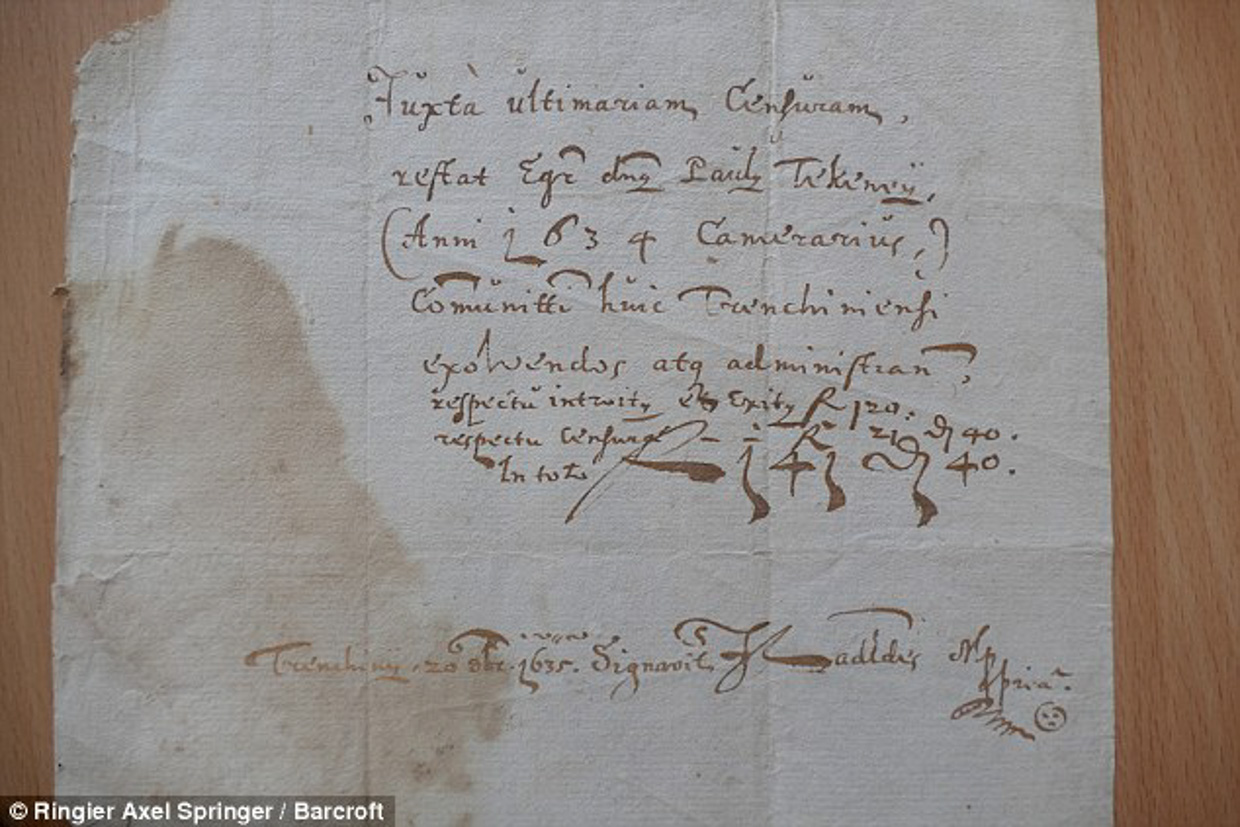 Iuxtà ultimariam Censuram,
restat Egr̃ dñq Pauly Tekeneÿ,
(Anni 1634 Camerarius,)
Com̃unitti huic Trenchiniensi
exolvendos atq administran,
respectu introity et Exity f 120:
respectu Censuræ - - f 21 đ 40.
In toto f 141 đ 40.
Trenchinÿ. 20 1635. Signavit Ladldes Mp
ppria
© Ringier Axel Springer / Barcroft